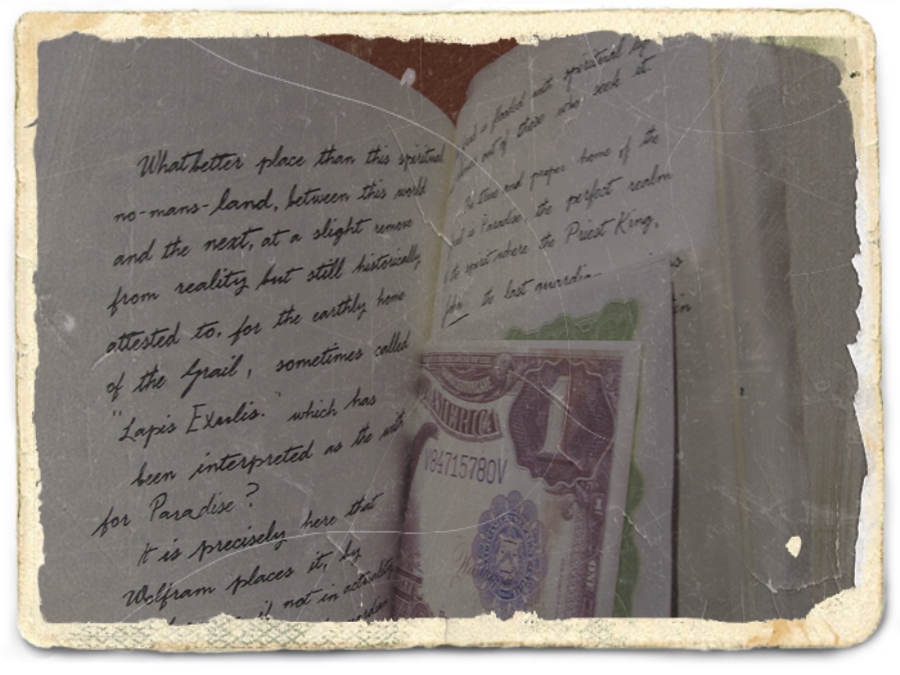 What better place than this spiritual
no-mans-land, between this world
and the next, at a slight remove
from reality but still historically
attested to, for the earthly home
of the Grail, sometimes called
"Lapis Exulis." which has
been interpreted as the
for Paradise?
It is precisely here that
Wolfram places it, by
if not in
with spiritual
out of those who seek it.
true and proper home of the
Paradise, the perfect realm
spirit where the Priest King,
the last
in
AMERICA
1
V84715780V